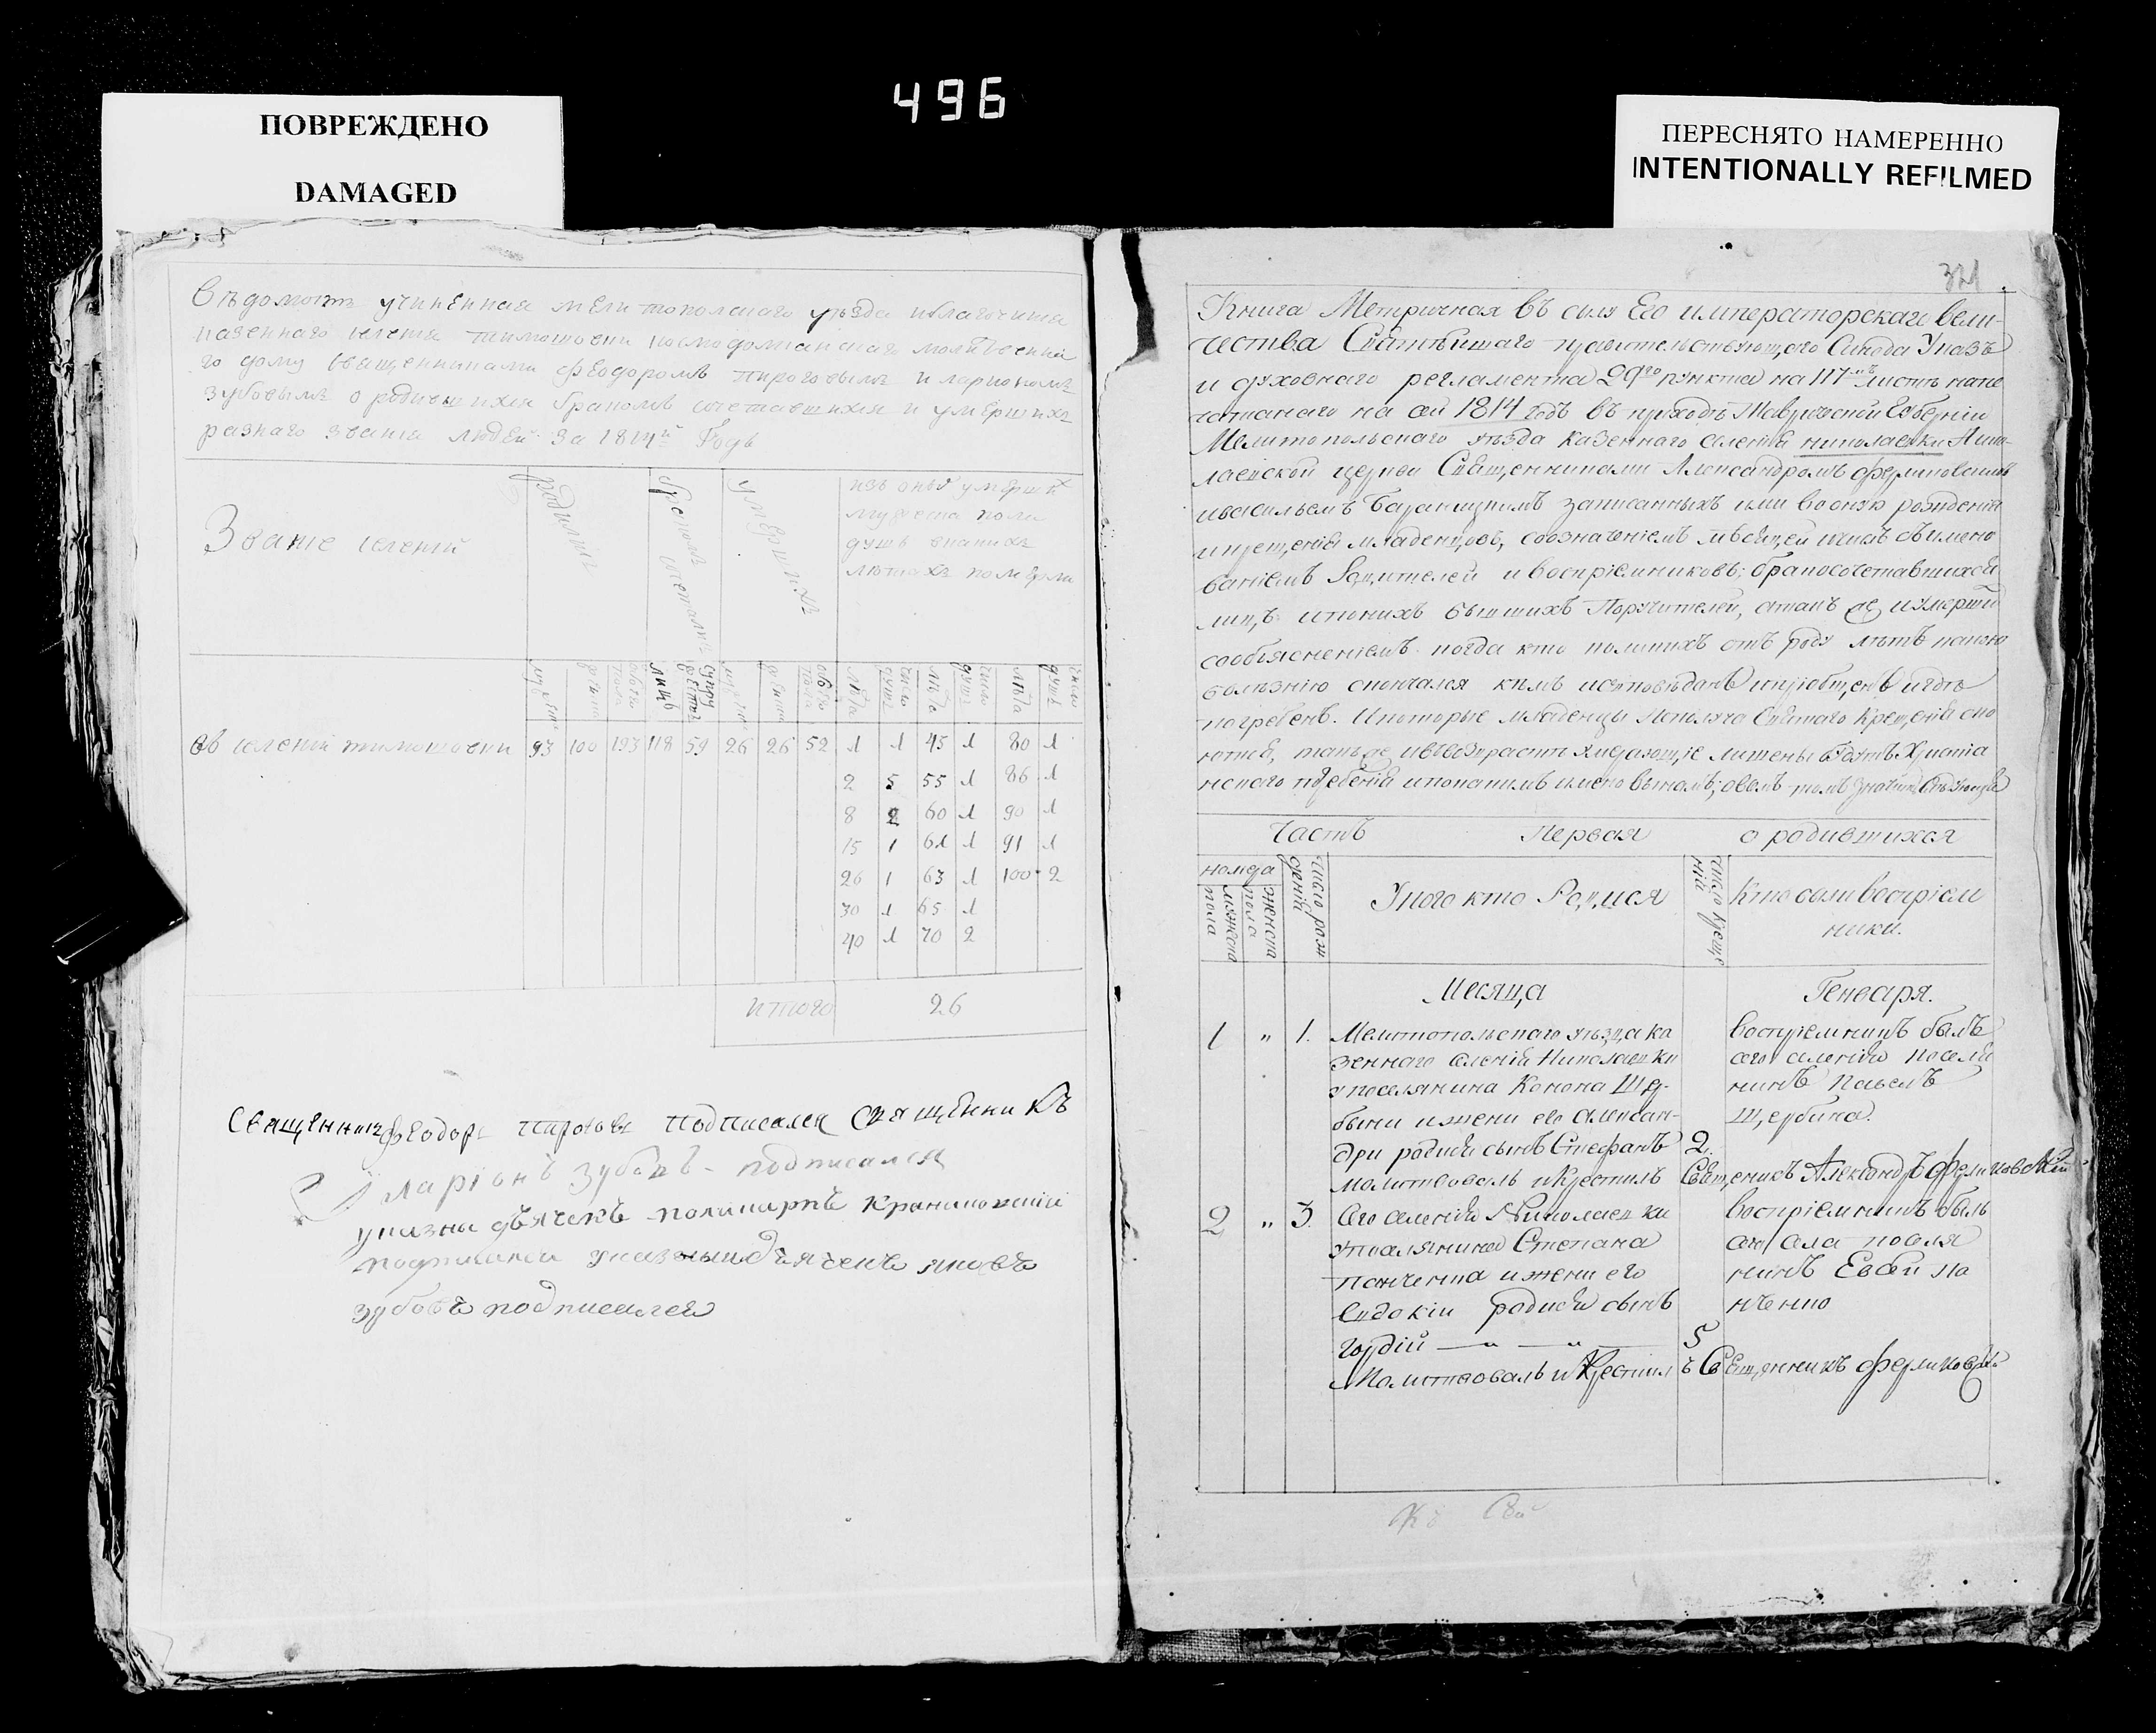 496
ПОВРЕЖДЕНО
DAMAGED
ПЕРЕСНЯТО НАМЕРЕННО
INTENTIONALLY REFILMED
Вѣдомость учиненная мелитополскаго уѣзда и благочиния
казеннаго селения тимошовки космодомианскаго молитвеннаго
го дому священниками феодоромъ пироговымъ и лариономъ
зубовымъ о родившихся бракомъ сочетавшихся и умершихъ
разнаго звания людей за 1814й Годъ
Звание селений
родилось
бракомъ сочеталось
умершихъ
изъ оныхъ умершихъ
мужеска пола
душъ в какихъ
лѣтахъ померли
лицъ
супружестъ
обоего пола
лѣта
душъ
число
лѣта
душъ
число
лѣта
душъ
число
въ селении тимошовки 93 100 193 118 59 26 26 52 1 1 45 1 80 1
2 5 55 1 86 1
8 2 60 1 90 1
15 1 61 1 91 1
26 1 63 1 100 2
30 1 65 1
40 1 70 2
итого 26
Священникъ Феодоръ Пироговъ подписался священникъ
Иларіонъ Зубовъ подписался
указны дьячекъ поликарпъ
подписался указныи дьячекъ яковъ
зубовъ подписался
321
Книга Метричная въ силу Его императорскаго вели-
чества Святѣйшаго правительствующаго Синода Указъ
и духовнаго регламента 29го пункта на 117мъ листѣ напе
чатанаго на сей 1814 годъ въ приходѣ Таврической Губерніи
Мелитопольскаго уѣзда казеннаго селенія николаевки Нико-
лаевской церкви Священниками Александромъ
и васильемъ записанныхъ ими во оную рожденій
и крещеній младенцовъ, со означеніемъ мѣсяцей и чиселъ с имено
ваніемъ Родителей и воспріемниковъ; бракосочетавшихся
лицъ и по нихъ бывшихъ Поручителей, а такъ же и умерши
со объясненіемъ когда кто поликихъ отъ роду лѣтъ какою
болѣзнію скончался кѣмъ исповѣданъ и пріобщенъ и гдѣ
погребенъ. И которые младенцы Святаго Крещенія
лишены будутъ Христіа
нскаго погребенія и по какимъ именно винамъ; о всемъ томъ
Часть Первая о родившихся
номера
мужеска пола
женска пола
число рожденія
У кого кто Родился
число крещенія
Кто были воспріем
ники.
Месяца Генваря.
1 „ 1. Мелитопольскаго уѣзда ка
зеннаго селенія Николаевки
у поселянина Конона Щер-
бины и жены его Александ-
дри родися сынъ Стефанъ 2.
воспріемникъ былъ
сего селенія посели
нинъ Павелъ
Щербина.
Молитвовалъ и Крестилъ Священикъ Александръ
2 „ 3. Сего селенія Николаевки
у поселянина Степана
Панченка и жены его
Евдокіи родися сынъ
Гордій — „ — „ — 5
воспріемникъ былъ
сего села поселя
нинъ Евсей Па
нченко
Молитвовалъ и Крестилъ Священникъ